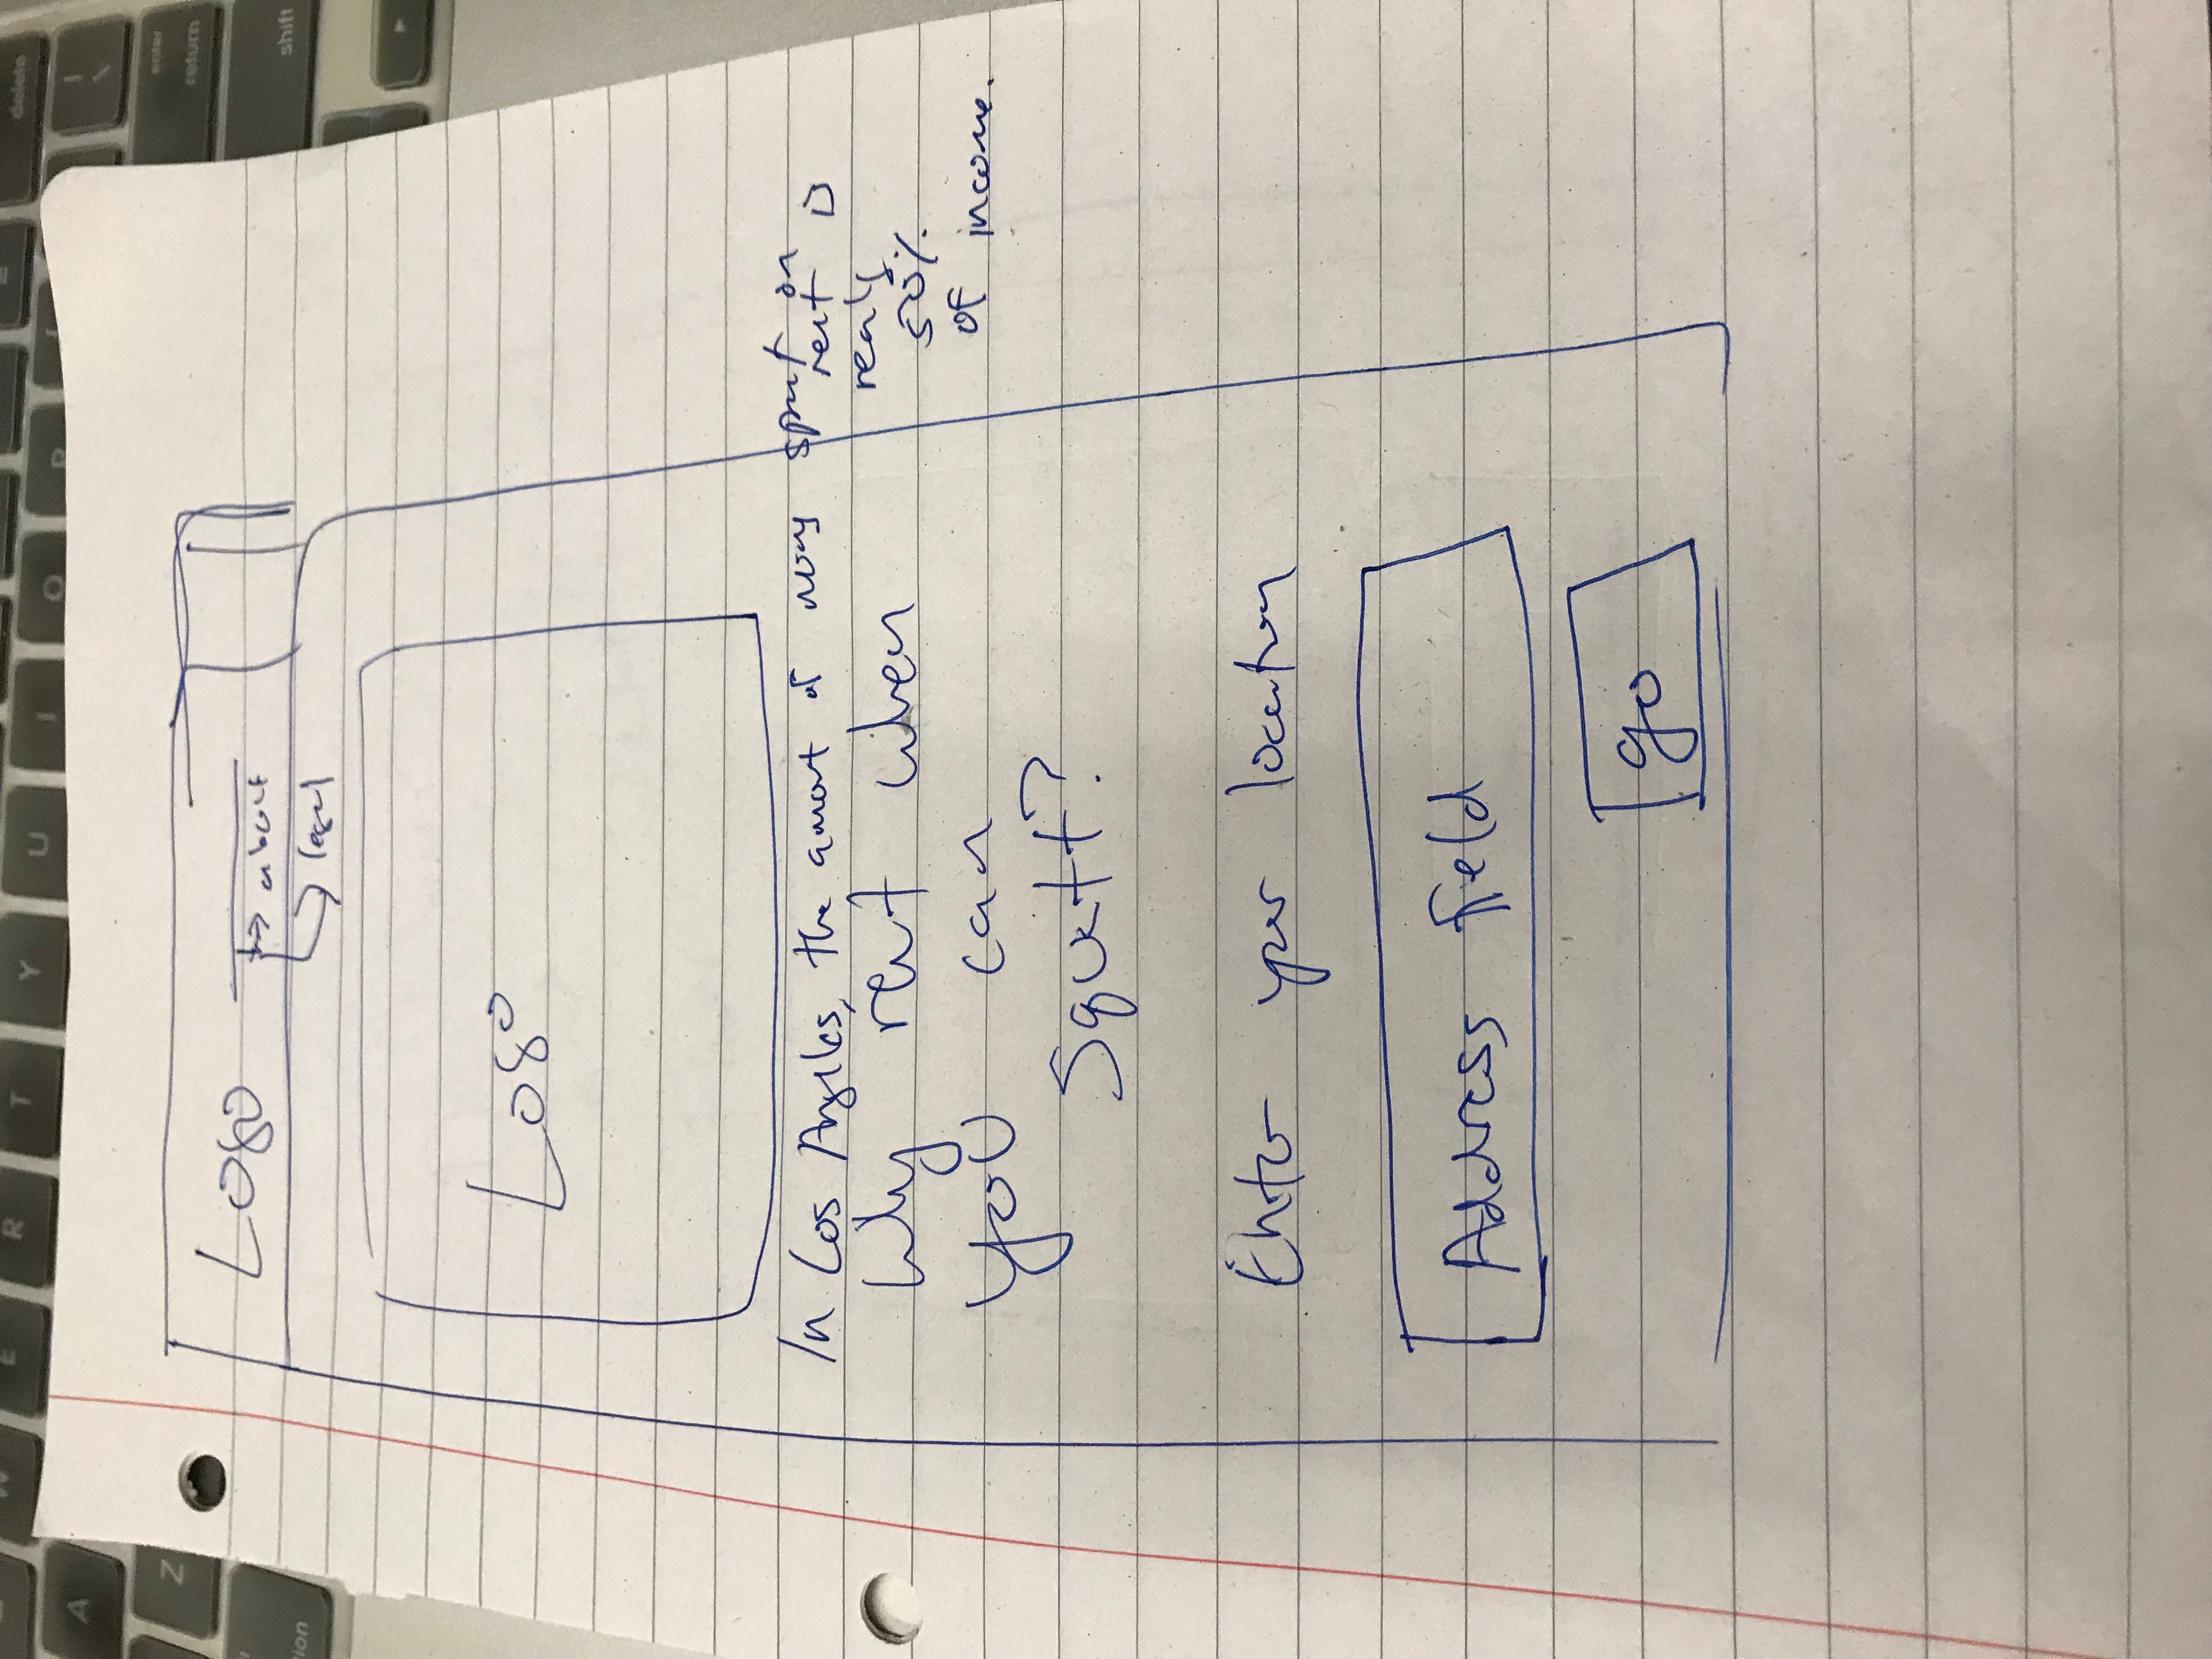 W E R T Y U I O P
delete
A
enter
return
Z
shift
Logo
about
legal
Logo
In Los Angeles, the amount of money spent on
rent is
really
50%
of income.
Why rent when
you can
Squatt?
Enter your location
Address field
go